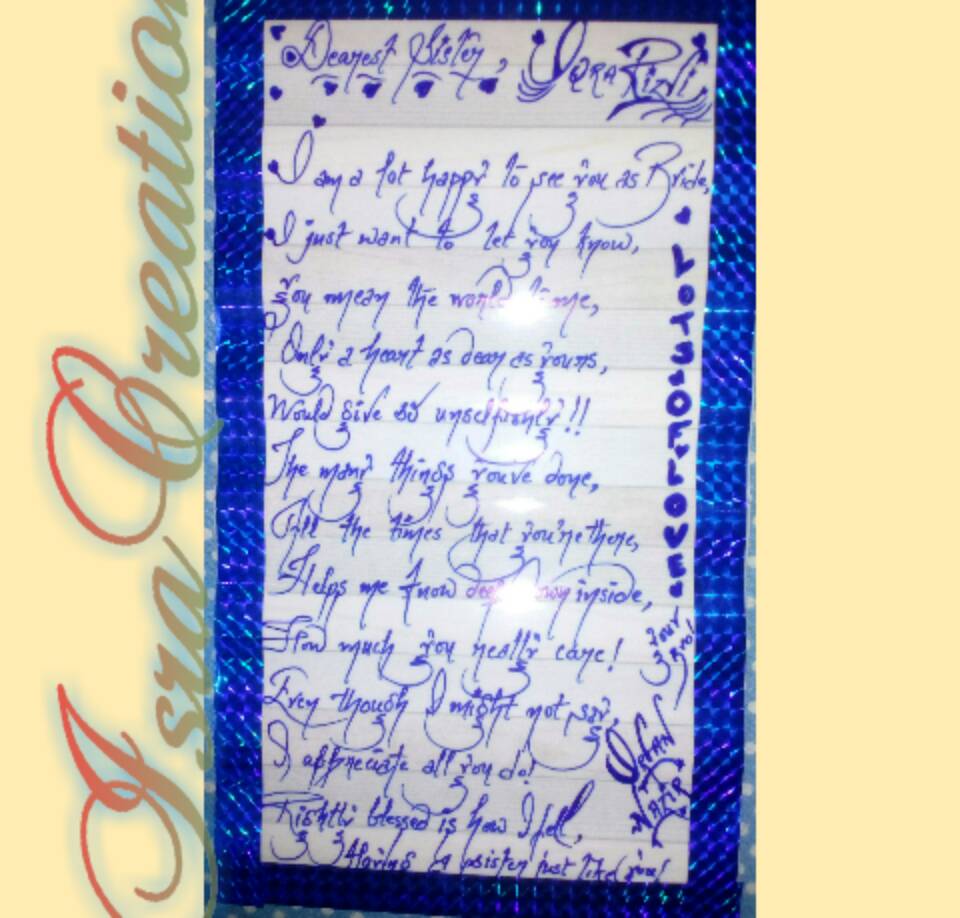 Isra Creation
Dearest Sister, IQRA Rizvi
I am a lot happy to see you as Bride,
I just want to let you know,
You mean the world to me,
Only a heart as dear as yours,
Would give so unselfishly!!
The many things you've done,
All the times that you're there,
Helps me know deep down inside,
How much you really care!
Even though I might not say,
I appreciate all you do!
Rightly blessed is how I fell,
Having a sister just like you!
LOTS OF LOVE
Your Bro!
Irfan
NAZIR